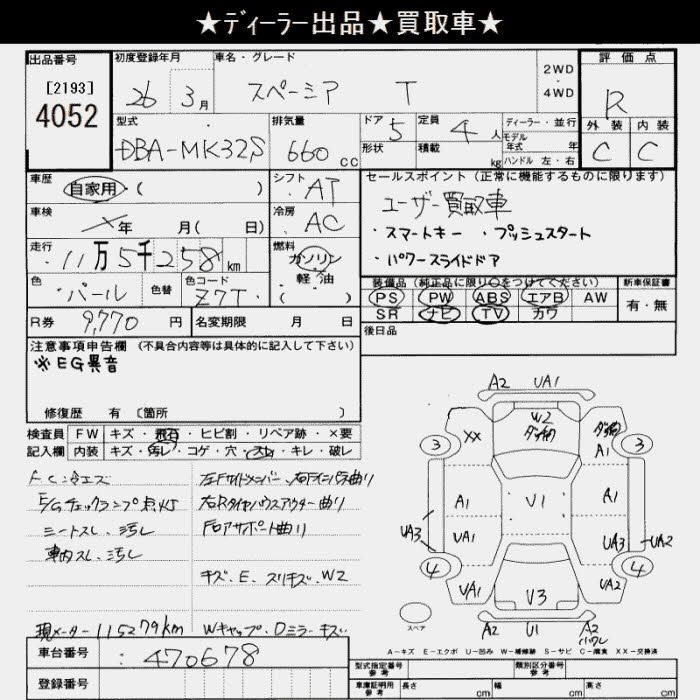 ★ディーラー出品★買取車★
出品番号 初度登録年月 車名・グレード 2WD・4WD 評価点
[2193]
4052
26 3月 スペーシア T R
型式 排気量 ドア 定員 ディーラー・並行
DBA-MK32S 660cc 5 4人
形状 積載 kg モデル年式 年 ハンドル 左・右
外装 内装
C C
車歴 自家用・( )
シフト AT
車検 ×年 月( 日)
冷房 AC
走行 11万5千258km
燃料 ガソリン・軽油・( )
色 パール 色替 色コード Z7T
R券 9,770円 名変期限 月 日
セールスポイント(正常に機能するものに限ります)
ユーザー買取車
・スマートキー ・プッシュスタート
・パワースライドドア
装備品(純正品に限り○をつけてください) 新車保証書
PS PW ABS エアB AW 有・無
SR ナビ TV カワ
後日品
注意事項申告欄 (不具合内容等は具体的に記入して下さい)
※EG異音
修復歴 有 〔箇所 〕
検査員 FW キズ・飛石・ヒビ割・リペア跡・×要
記入欄 内装 キズ・汚レ・コゲ・穴・スレ・キレ・破レ
E/Gチェックランプ点灯
シートスレ、汚レ
車内スレ、汚レ
現メーター115279km
右Rタイヤハウスアウター曲リ
Fロアサポート曲リ
キズ、E、スリキズ、W2
Wキャップ・Dミラーキズ
A2 UA1
XX W2 A1
3 3
A1 U1 A1
UA3 UA1 UA3 UA2
4 4
UA1 U3 UA2
A2 U1 A2
スペア
A-キズ E-エクボ U-凹み W-補修跡 S-サビ C-腐食 XX-交換済
車台番号 470678
登録番号
型式指定番号 参考 類別区分番号 参考
車庫証明用 参考 長さ cm 幅 cm 高さ cm